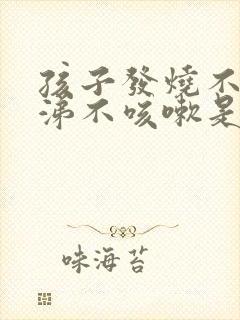 孩子發燒不
涕不咳嗽是
味海苔